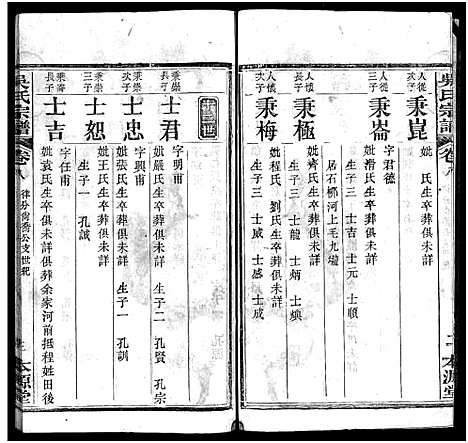 吳氏宗譜
卷八
本源堂
人從長子
秉崑
妣 氏生卒葬俱未詳
人從次子
秉崙
字君德
妣潛氏生卒葬俱未詳
生子三 士吉 士元 士順
人懷長子
秉極
居石梛河上毛九壠
妣齊氏生卒葬俱未詳
生子三 士龍 士炳 士煥
人懷次子
秉梅
妣程氏 劉氏生卒葬俱未詳
生子三 士威 士感 士成
世
秉崇長子
士君
字明甫
妣嚴氏生卒葬俱未詳
生子二 孔賢 孔宗
秉崇次子
士忠
字興甫
妣張氏生卒葬俱未詳 生子一 孔訓
秉崇三子
士恕
妣王氏生卒葬俱未詳
生子一 孔誠
秉崙長子
士吉
字任甫
妣袁氏生卒俱未詳葬余家河前抵程姓田後
吳氏宗譜
卷八
律分尚喬公支世紀
本源堂